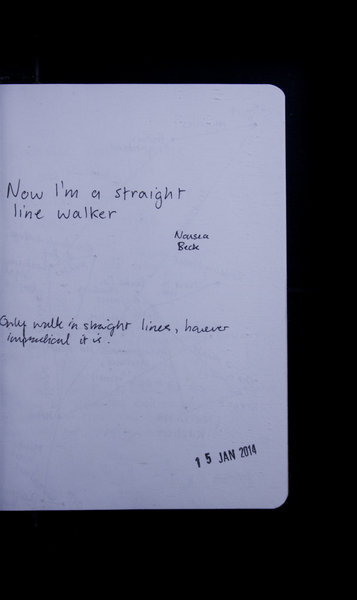 Now I'm a straight
line walker
Nausea
Beck
Only walk in straight lines, however
impractical it is.
15 JAN 2014